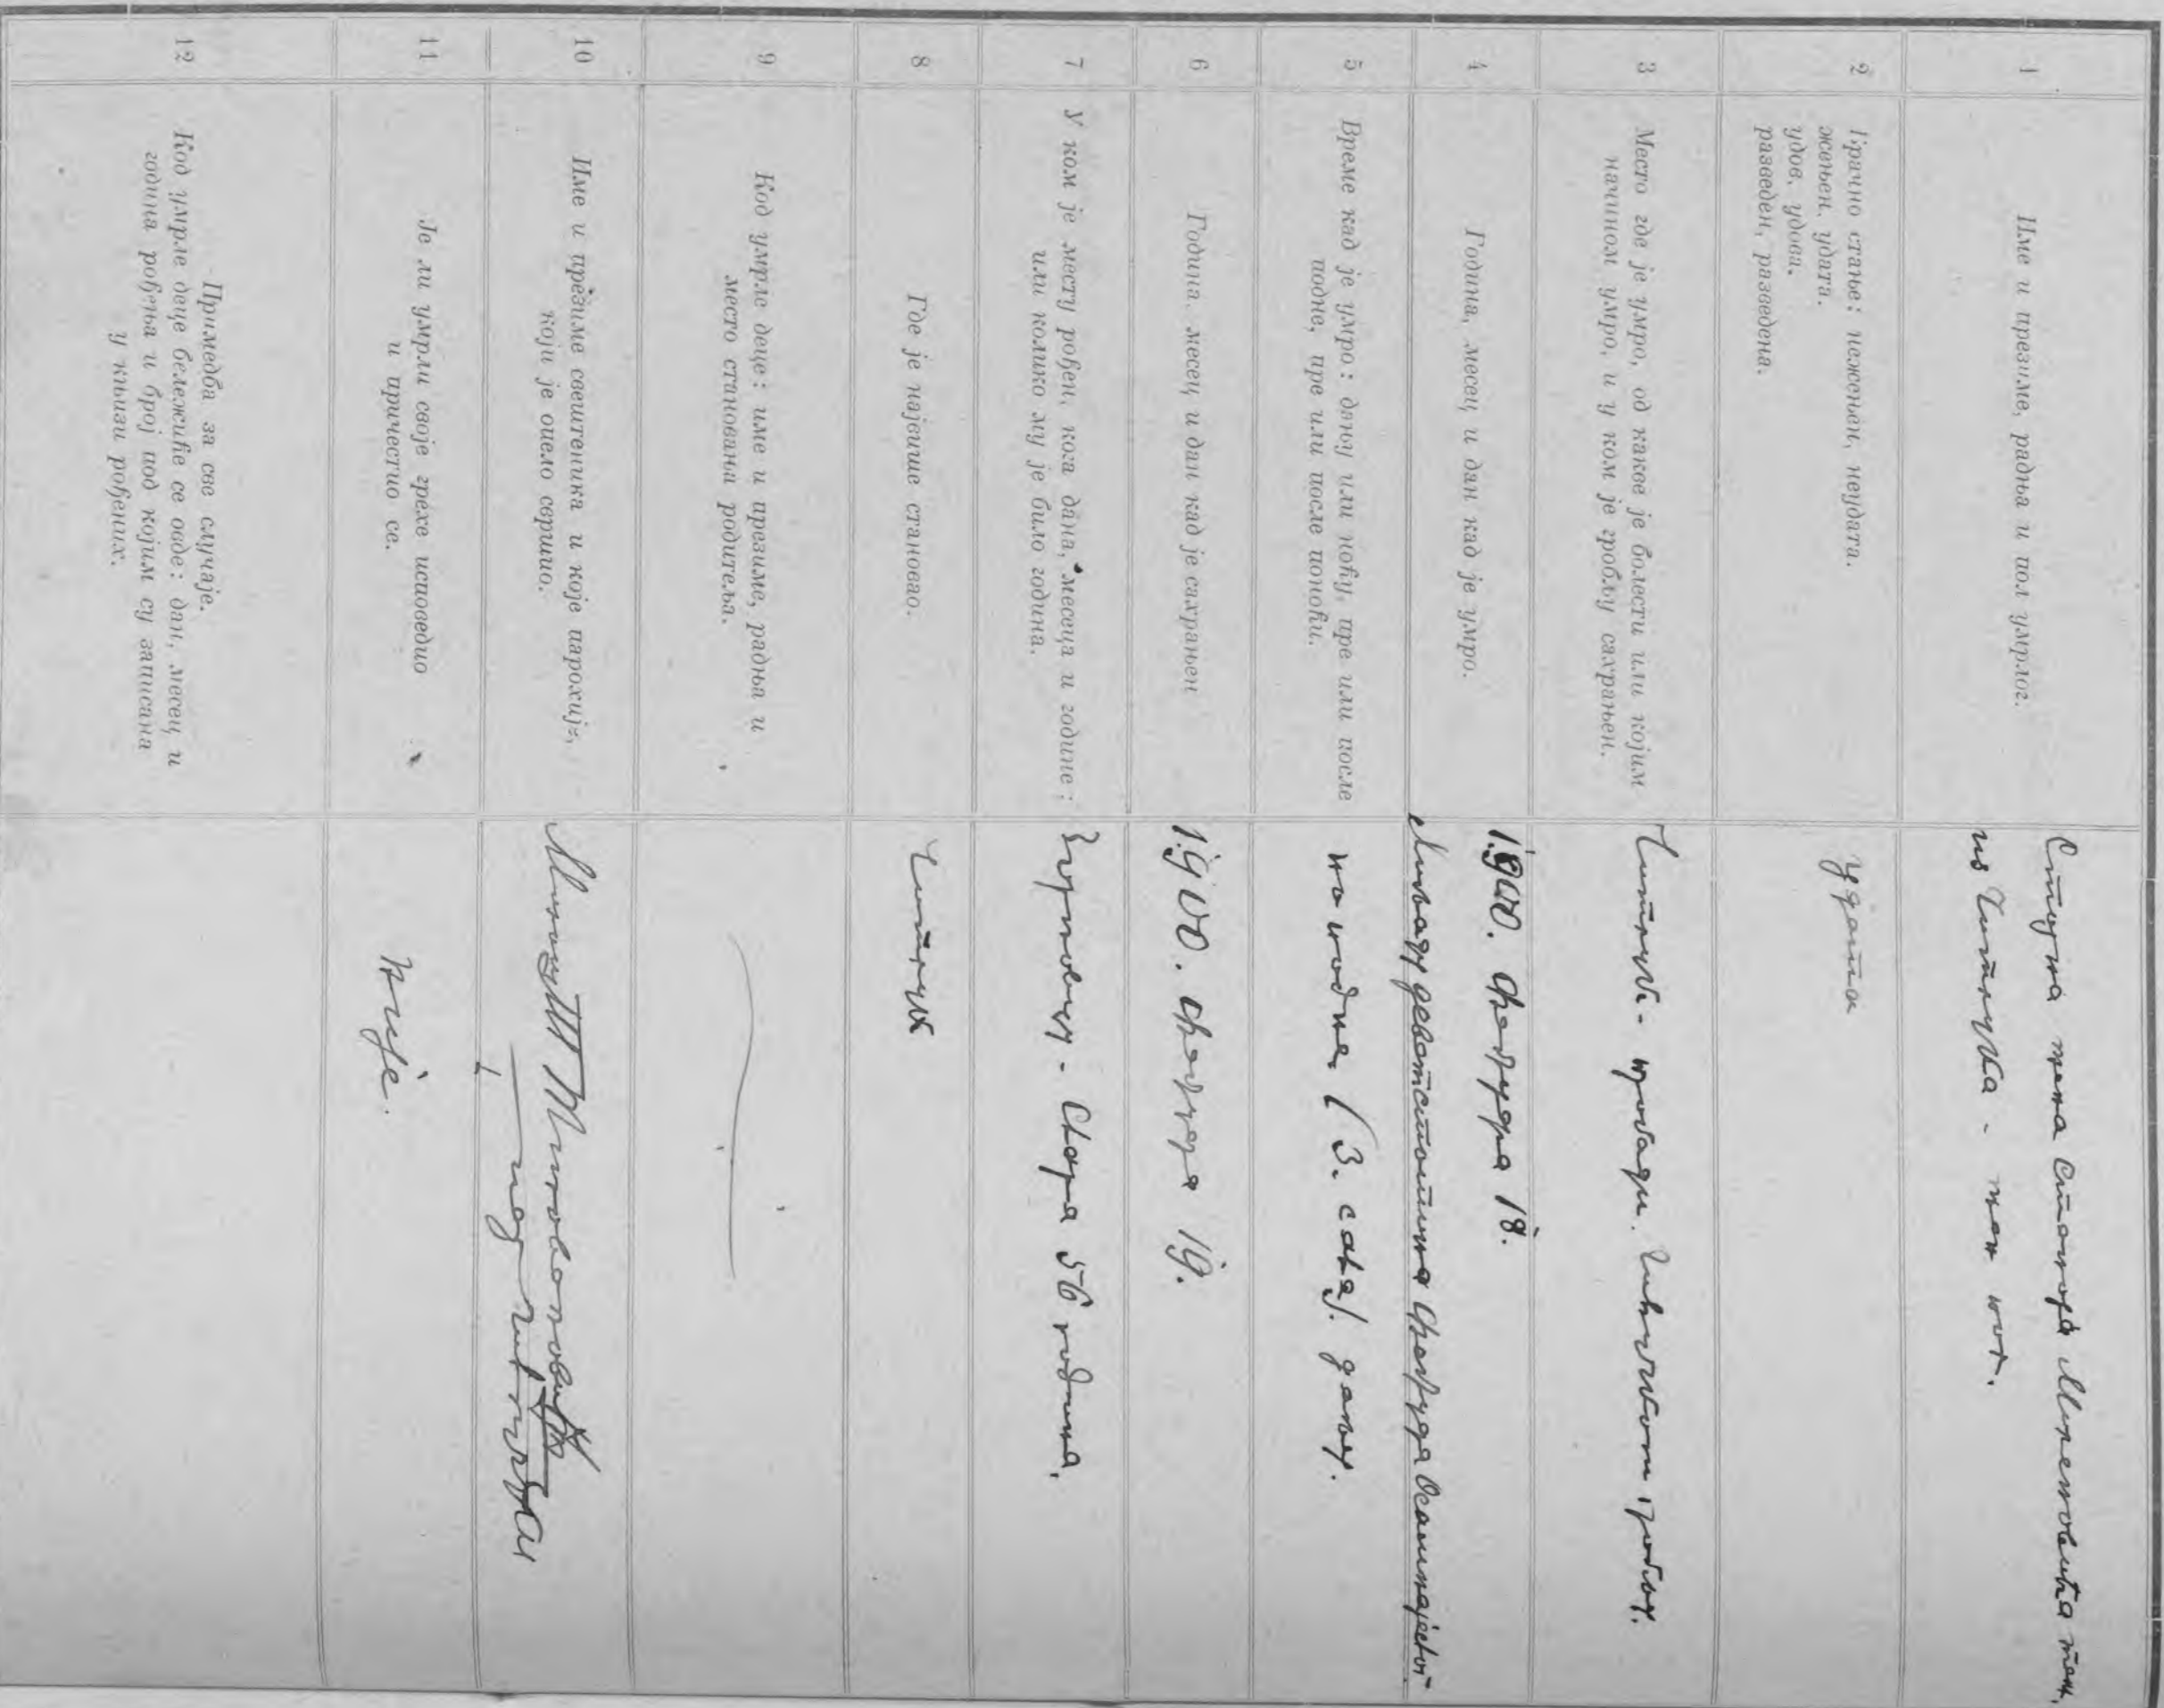 1
Име и презиме, радња и пол умрлог.
жена
Миленковића
из Читлука - жен пол.
2
Брачно стање: нежењен, неудата.
жењен, удата.
удов, удова.
разведен, разведена.
удата
3
Место где је умро, од какве је болести или којим
начином умро, и у ком је гробљу сахрањен.
Читлук - пробади.
гробљу.
4
Година, месец и дан кад је умро.
1900. Фебруара 18.
Хиљаду деветстотина Фебруара Осамнајестог
5
Време кад је умро: дању или ноћу, пре или после
подне, пре или после поноћи.
по подне (3. сата) дању.
6
Година, месец и дан кад је сахрањен
1900. Фебруара 19.
7
У ком је месту рођен, кога дана, месеца и године:
или колико му је било година.
Стара 56 година,
8
Где је највише становао.
Читлук
9
Код умрле деце: име и презиме, радња и
место становања родитеља.
10
Име и презиме свештеника и које парохије,
који је опело свршио.
11
Је ли умрли своје грехе исповедио
и причестио се.
није.
12
Примедба за све случаје.
Код умрле деце бележиће се овде: дан, месец и
година рођења и број под којим су записана
у књизи рођених.